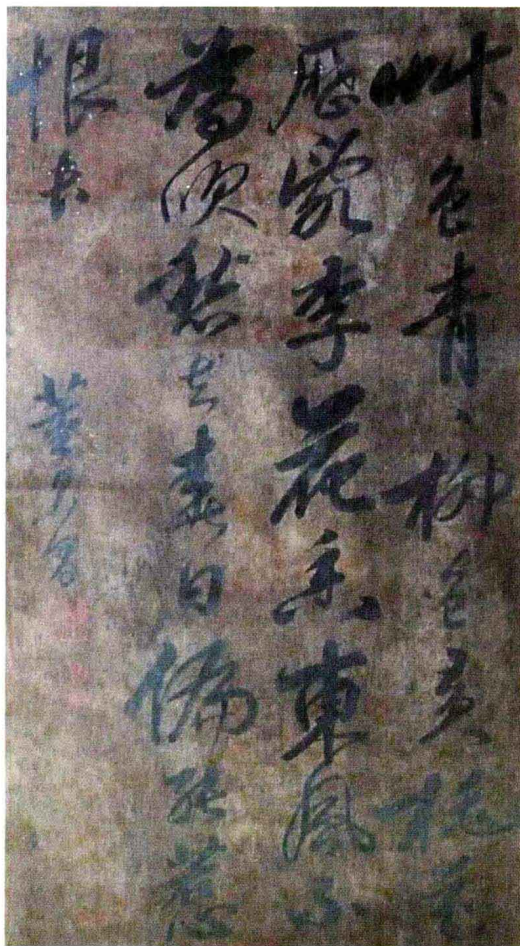 艸色青〻柳色黃桃花
歷亂李花香東風不
為吹愁去春日偏能惹
恨長
董其昌